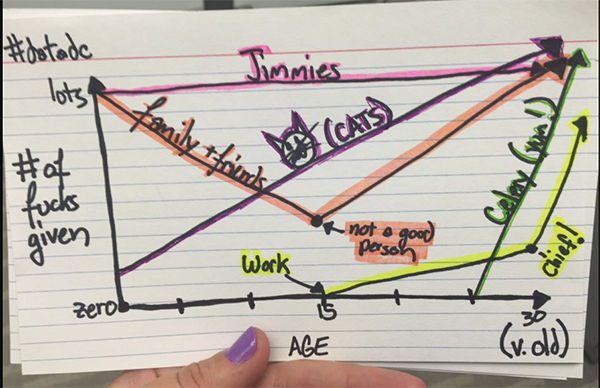 #datadc
Jimmies
lots
family + friends
(CATS)
# of
fucks
given
Celery (yum!)
not a good
person
Work
chief!
zero
15
30
AGE
(v. old)